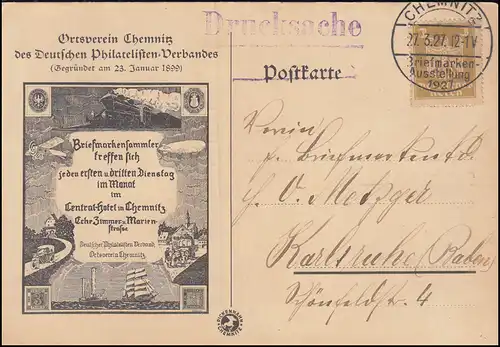 Ortsverein Chemnitz
des Deutschen Philatelisten-Verbandes
(Gegründet am 23. Januar 1899)
Drucksache
CHEMNITZ
27.3.27.12-1V
Briefmarken-
Ausstellung
1927
Postkarte
Briefmarkensammler
treffen sich
jeden ersten u. dritten Dienstag
im Monat
im
Central-Hotel in Chemnitz
Ecke Zimmer- u. Marien-
strasse
Deutscher Philatelisten-Verband,
Ortsverein Chemnitz.
Verein
f. Briefmarkenkde
H. O. Metzger
Karlsruhe (Baden)
Schönfeldstr. 4
PICKENHAHN
CHEMNITZ